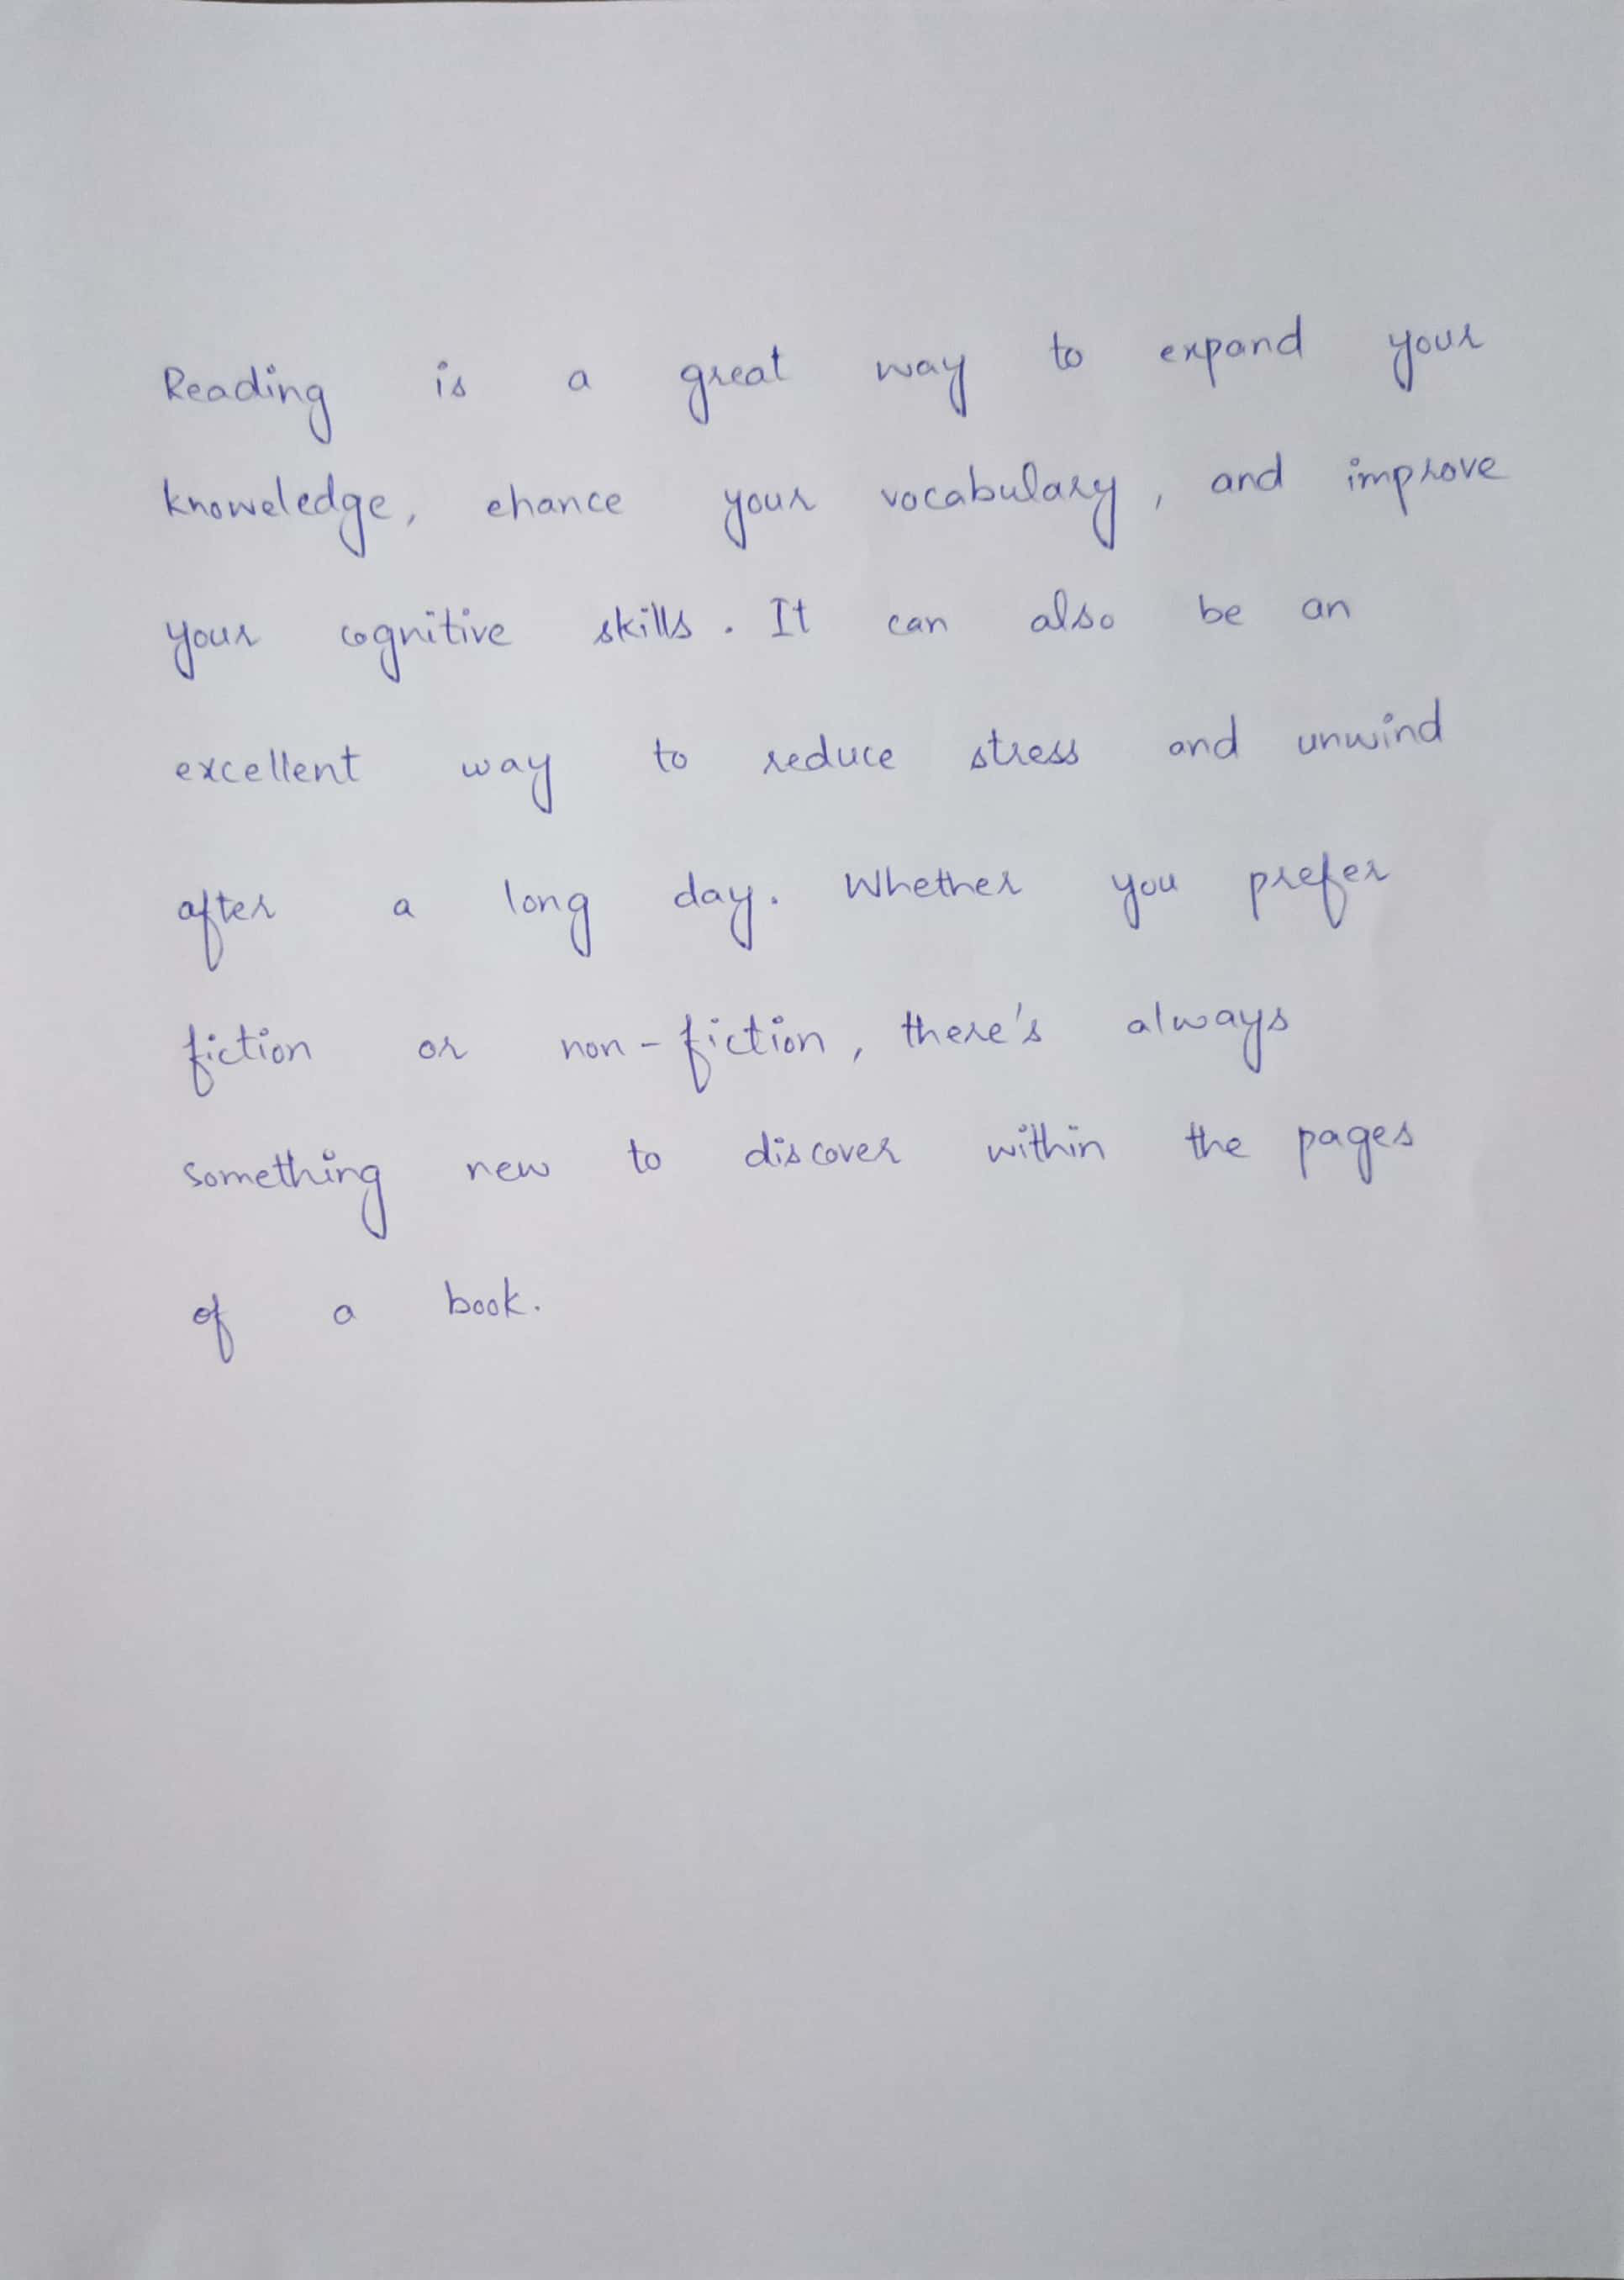 Reading is a great way to expand your
knoweledge, ehance your vocabulary, and improve
your cognitive skills. It can also be an
excellent way to reduce stress and unwind
after a long day. Whether you prefer
fiction or non-fiction, there's always
something new to discover within the pages
of a book.